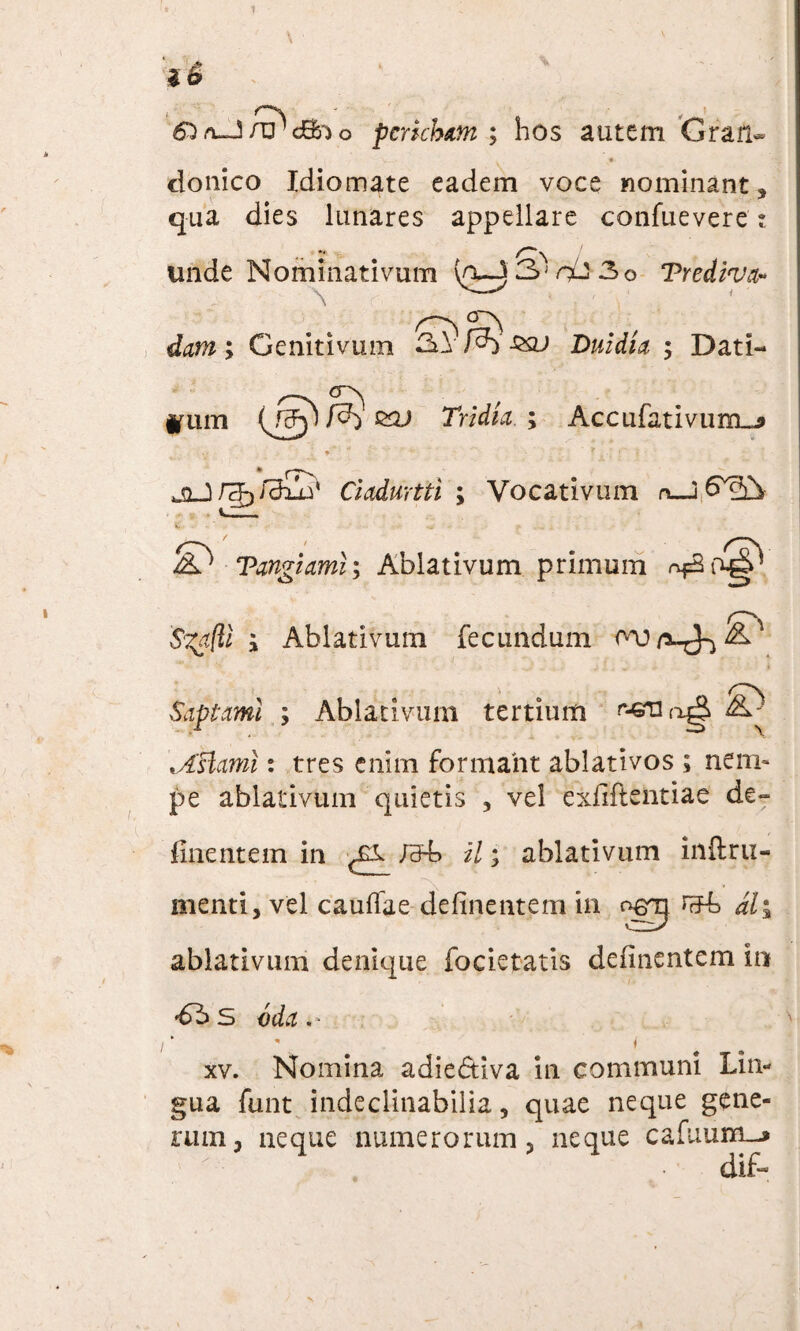 16
pericham ; hos autem Gran-
donico Idiomate eadem voce nominant,
qua dies lunares appellare conſuevere :
unde Nominativum Prediva-
dam ; Genitivum Duidia ; Dati-
vum Tridia ; Accuſativum
Ciadurtti ; Vocativum
Pangiamì ; Ablativum primum
Szaſtì ; Ablativum ſecundum
Saptamì ; Ablativum tertium
Aſtamì : tres enim formant ablativos ; nem-
pe ablativum quietis , vel exſiſtentiae de-
ſinentem in il ; ablativum inſtru-
menti, vel cauſſae deſinentem in ál ;
ablativum denique ſocietatis deſinentem in
óda .
xv. Nomina adiectiva in communi Lin-
gua ſunt indeclinabilia, quae neque gene-
rum, neque numerorum, neque caſuum
dif-